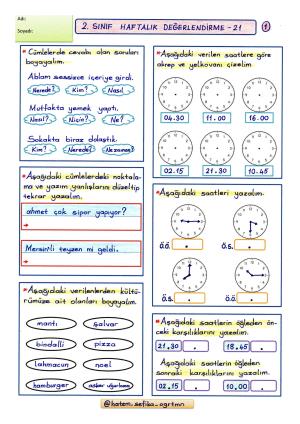 Adı:
Soyadı:
2. SINIF HAFTALIK DEĞERLENDİRME - 21
1
* Cümlelerde cevabı olan soruları boyayalım.
Ablam sessizce içeriye girdi.
Nerede? Kim? Nasıl?
Mutfakta yemek yaptı.
Nasıl? Niçin? Ne?
Sokakta biraz dolaştık.
Kim? Nerede? Ne zaman?
* Aşağıda verilen saatlere göre
akrep ve yelkovanı çizelim.
04.30 11.00 16.00
02.15 21.30 10.45
* Aşağıdaki cümlelerdeki noktala-
ma ve yazım yanlışlarını düzeltip
tekrar yazalım.
ahmet çok sipor yapıyor?
Mersin'li teyzen mi geldi.
* Aşağıdaki saatleri yazalım.
Ö.Ö. . Ö.S. .
Ö.Ö. . Ö.S. .
* Aşağıdaki verilenlerden kültü-
rümüze ait olanları boyayalım.
mantı şalvar
bindallı pizza
lahmacun noel
hamburger asker uğurlama
* Aşağıdaki saatlerin öğleden ön-
ceki karşılıklarını yazalım.
21.30 . 18.45 .
Aşağıdaki saatlerin öğleden
sonraki karşılıklarını yazalım.
02.15 . 10.00 .
@hatem_sefika_ogrtmn